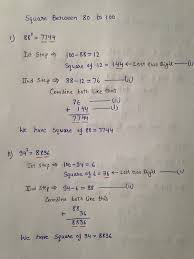 Square Between 80 to 100
1) 88² = 7744
Ist Step ⟹ 100-88=12
Square of 12 = 144 ← Last two Digit —(i)
IInd Step ⟹ 88-12 = 76 —(ii)
Combine both like this
76 —(ii)
+ 144 —(i)
7744
We have Square of 88 = 7744
2) 94² = 8836
Ist Step ⟹ 100-94 = 6
Square of 6 = 36 ← Last two Digit —(i)
IInd Step ⟹ 94-6 = 88 —(ii)
Combine both like this
88
+ 36
8836
We have Square of 94 = 8836